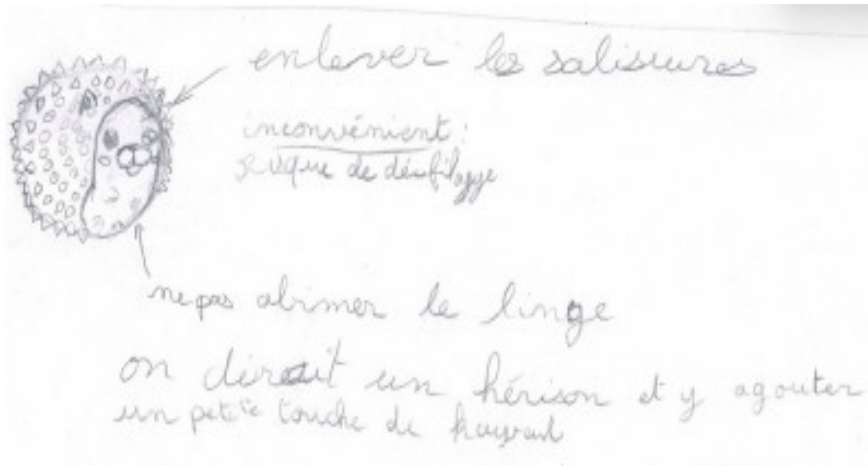 enlever les salisures
inconvénient :
risque de défilage
ne pas abimer le linge
on dirait un hérison et y agouter
un petite touche de